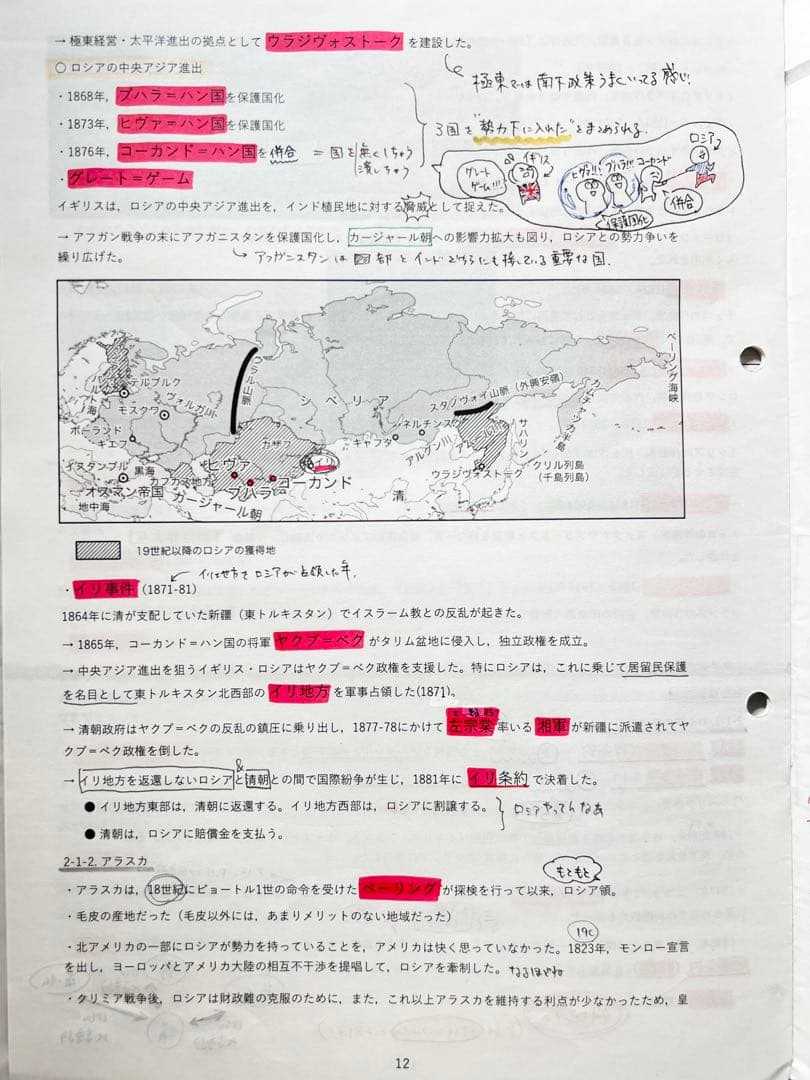 → 極東経営・太平洋進出の拠点として ウラジヴォストーク を建設した。
極東では南下政策うまくいってる感じ!
○ ロシアの中央アジア進出
・1868年，ブハラ＝ハン国を保護国化
・1873年，ヒヴァ＝ハン国を保護国化
・1876年，コーカンド＝ハン国を併合 ＝ 国を無くしちゃう
潰しちゃう
3国を"勢力下に入れた"とまとめられる。
・グレート＝ゲーム
グレート
ゲーム!!!
イギリス
ヒヴァ!!
ブハラ!!!
コーカンド
ロシア
保護国化
併合
イギリスは，ロシアの中央アジア進出を，インド植民地に対する脅威として捉えた。
→ アフガン戦争の末にアフガニスタンを保護国化し，カージャール朝への影響力拡大も図り，ロシアとの勢力争いを
繰り広げた。
アフガニスタンは 部とインドどちらにも接している重要な国.
ペテルブルク
バルト海
モスクワ
ヴォルガ川
ウラル山脈
シベリア
スタノヴォイ山脈（外興安嶺）
カムチャツカ半島
ベーリング海峡
ポーランド
キエフ
カザフ
キャフタ
ネルチンスク
アルグン川
アムール川
サハリン
イスタンブル
黒海
カフカス地方
ヒヴァ
イリ
ウラジヴォストーク
クリル列島
（千島列島）
オスマン帝国
ブハラ
コーカンド
清
地中海
カージャール朝
19世紀以降のロシアの獲得地
イリ地方をロシアが占領した年.
・イリ事件 (1871-81)
1864年に清が支配していた新疆（東トルキスタン）でイスラーム教との反乱が起きた。
→ 1865年，コーカンド＝ハン国の将軍 ヤクブ＝ベク がタリム盆地に侵入し，独立政権を成立。
→ 中央アジア進出を狙うイギリス・ロシアはヤクブ＝ベク政権を支援した。特にロシアは，これに乗じて居留民保護
を名目として東トルキスタン北西部の イリ地方 を軍事占領した(1871)。
→ 清朝政府はヤクブ＝ベクの反乱の鎮圧に乗り出し，1877-78にかけて 左宗棠 率いる 湘軍 が新疆に派遣されてヤ
クブ＝ベク政権を倒した。
&
→ イリ地方を返還しないロシアと清朝との間で国際紛争が生じ，1881年に イリ条約 で決着した。
● イリ地方東部は，清朝に返還する。イリ地方西部は，ロシアに割譲する。
● 清朝は，ロシアに賠償金を支払う。
ロシアやってんなあ
2-1-2. アラスカ
もともと
・アラスカは，18世紀にピョートル1世の命令を受けた ベーリング が探検を行って以来，ロシア領。
・毛皮の産地だった（毛皮以外には，あまりメリットのない地域だった）
19c
・北アメリカの一部にロシアが勢力を持っていることを，アメリカは快く思っていなかった。1823年，モンロー宣言
を出し，ヨーロッパとアメリカ大陸の相互不干渉を提唱して，ロシアを牽制した。なるほどね
・クリミア戦争後，ロシアは財政難の克服のために，また，これ以上アラスカを維持する利点が少なかったため，皇
12